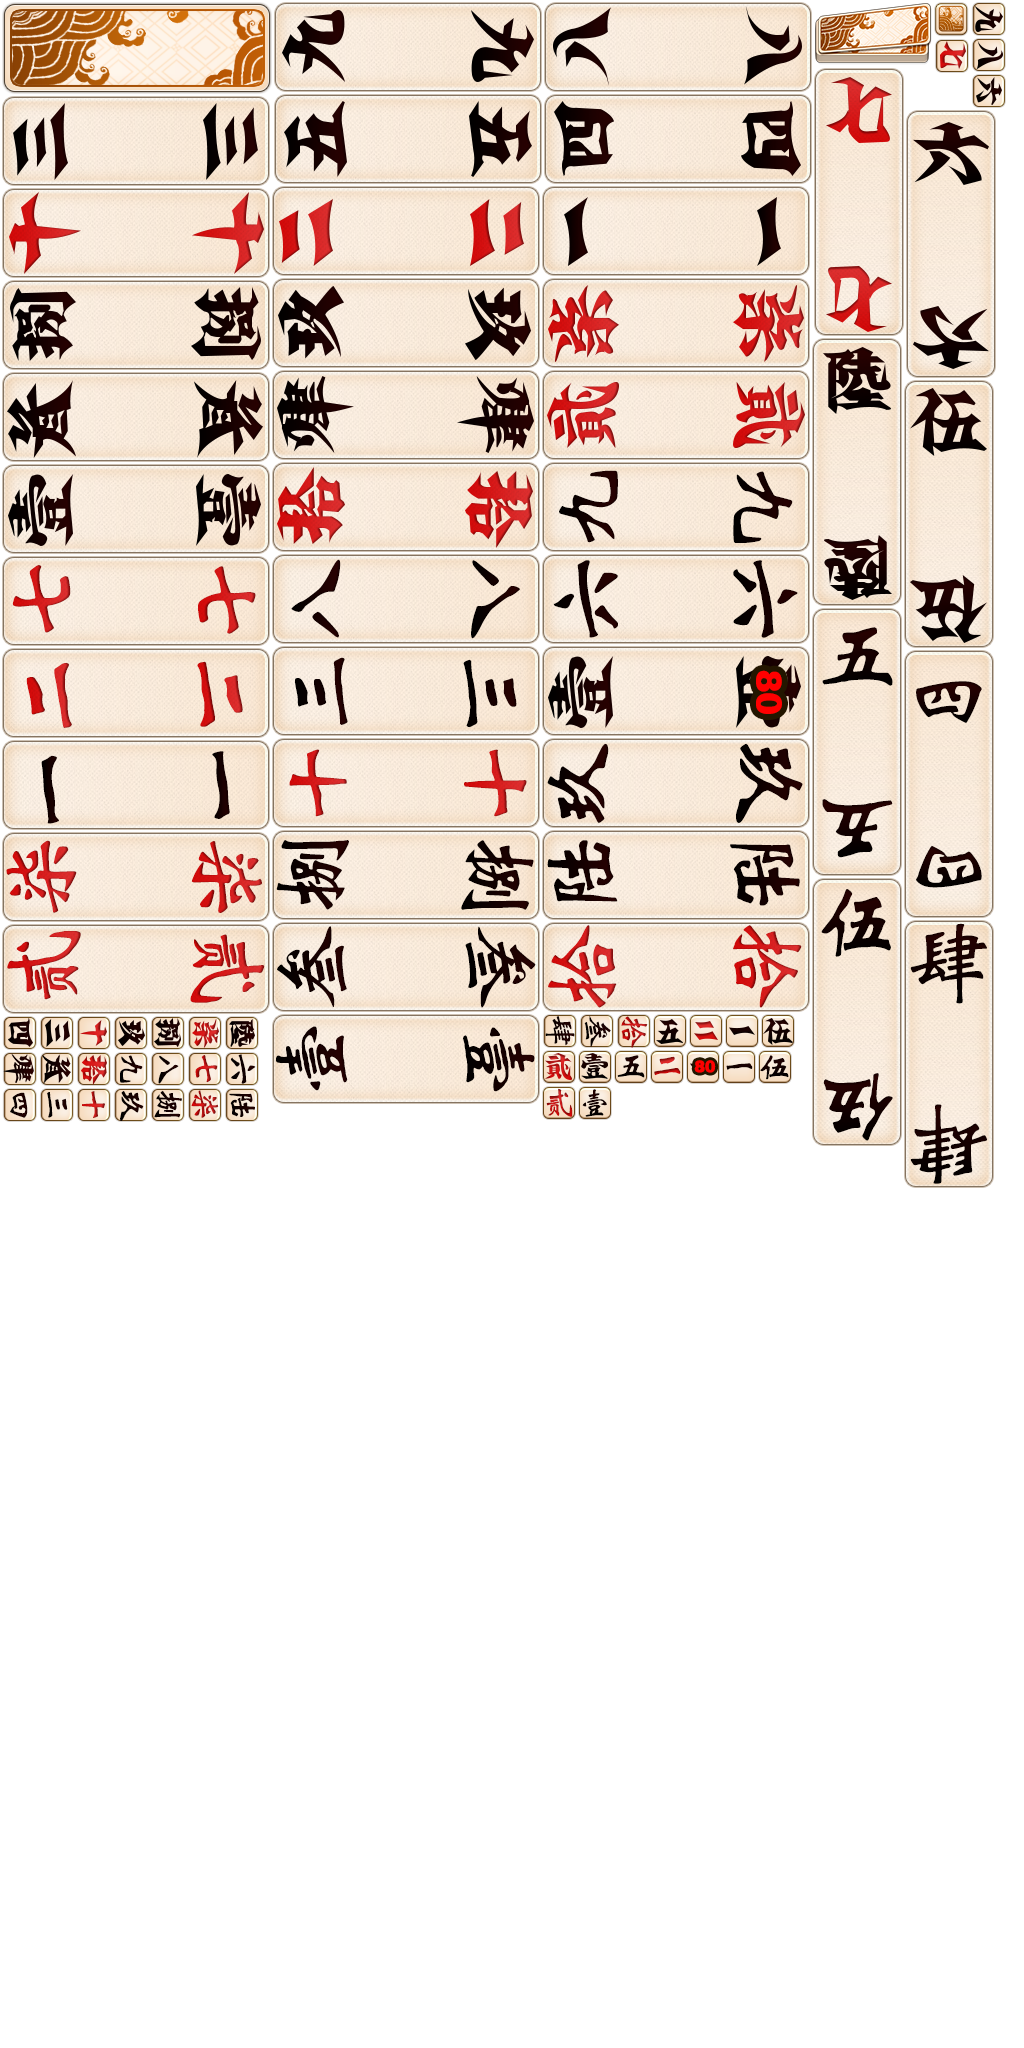 九 九
八 八
三 三
五 五
四 四
十 十
二 二
一 一
捌 捌
玖 玖
柒 柒
叁 叁
肆 肆
貳 貳
壹 壹
拾 拾
九 九
七 七
八 八
六 六
二 二
三 三
壹 80
一 一
十 十
玖 玖
柒 柒
捌 捌
陆 陆
贰 贰
叁 叁
拾 拾
壹 壹
七 七
陸 陸
五 五
伍 伍
六 六
伍 伍
四 四
肆 肆
九
七 八
六
四 三 十 玖 捌 柒 陸
肆 叁 拾 九 八 七 六
四 三 十 玖 捌 柒 陆
肆 叁 拾 五 二 一 伍
貳 壹 五 二 80 一 伍
贰 壹